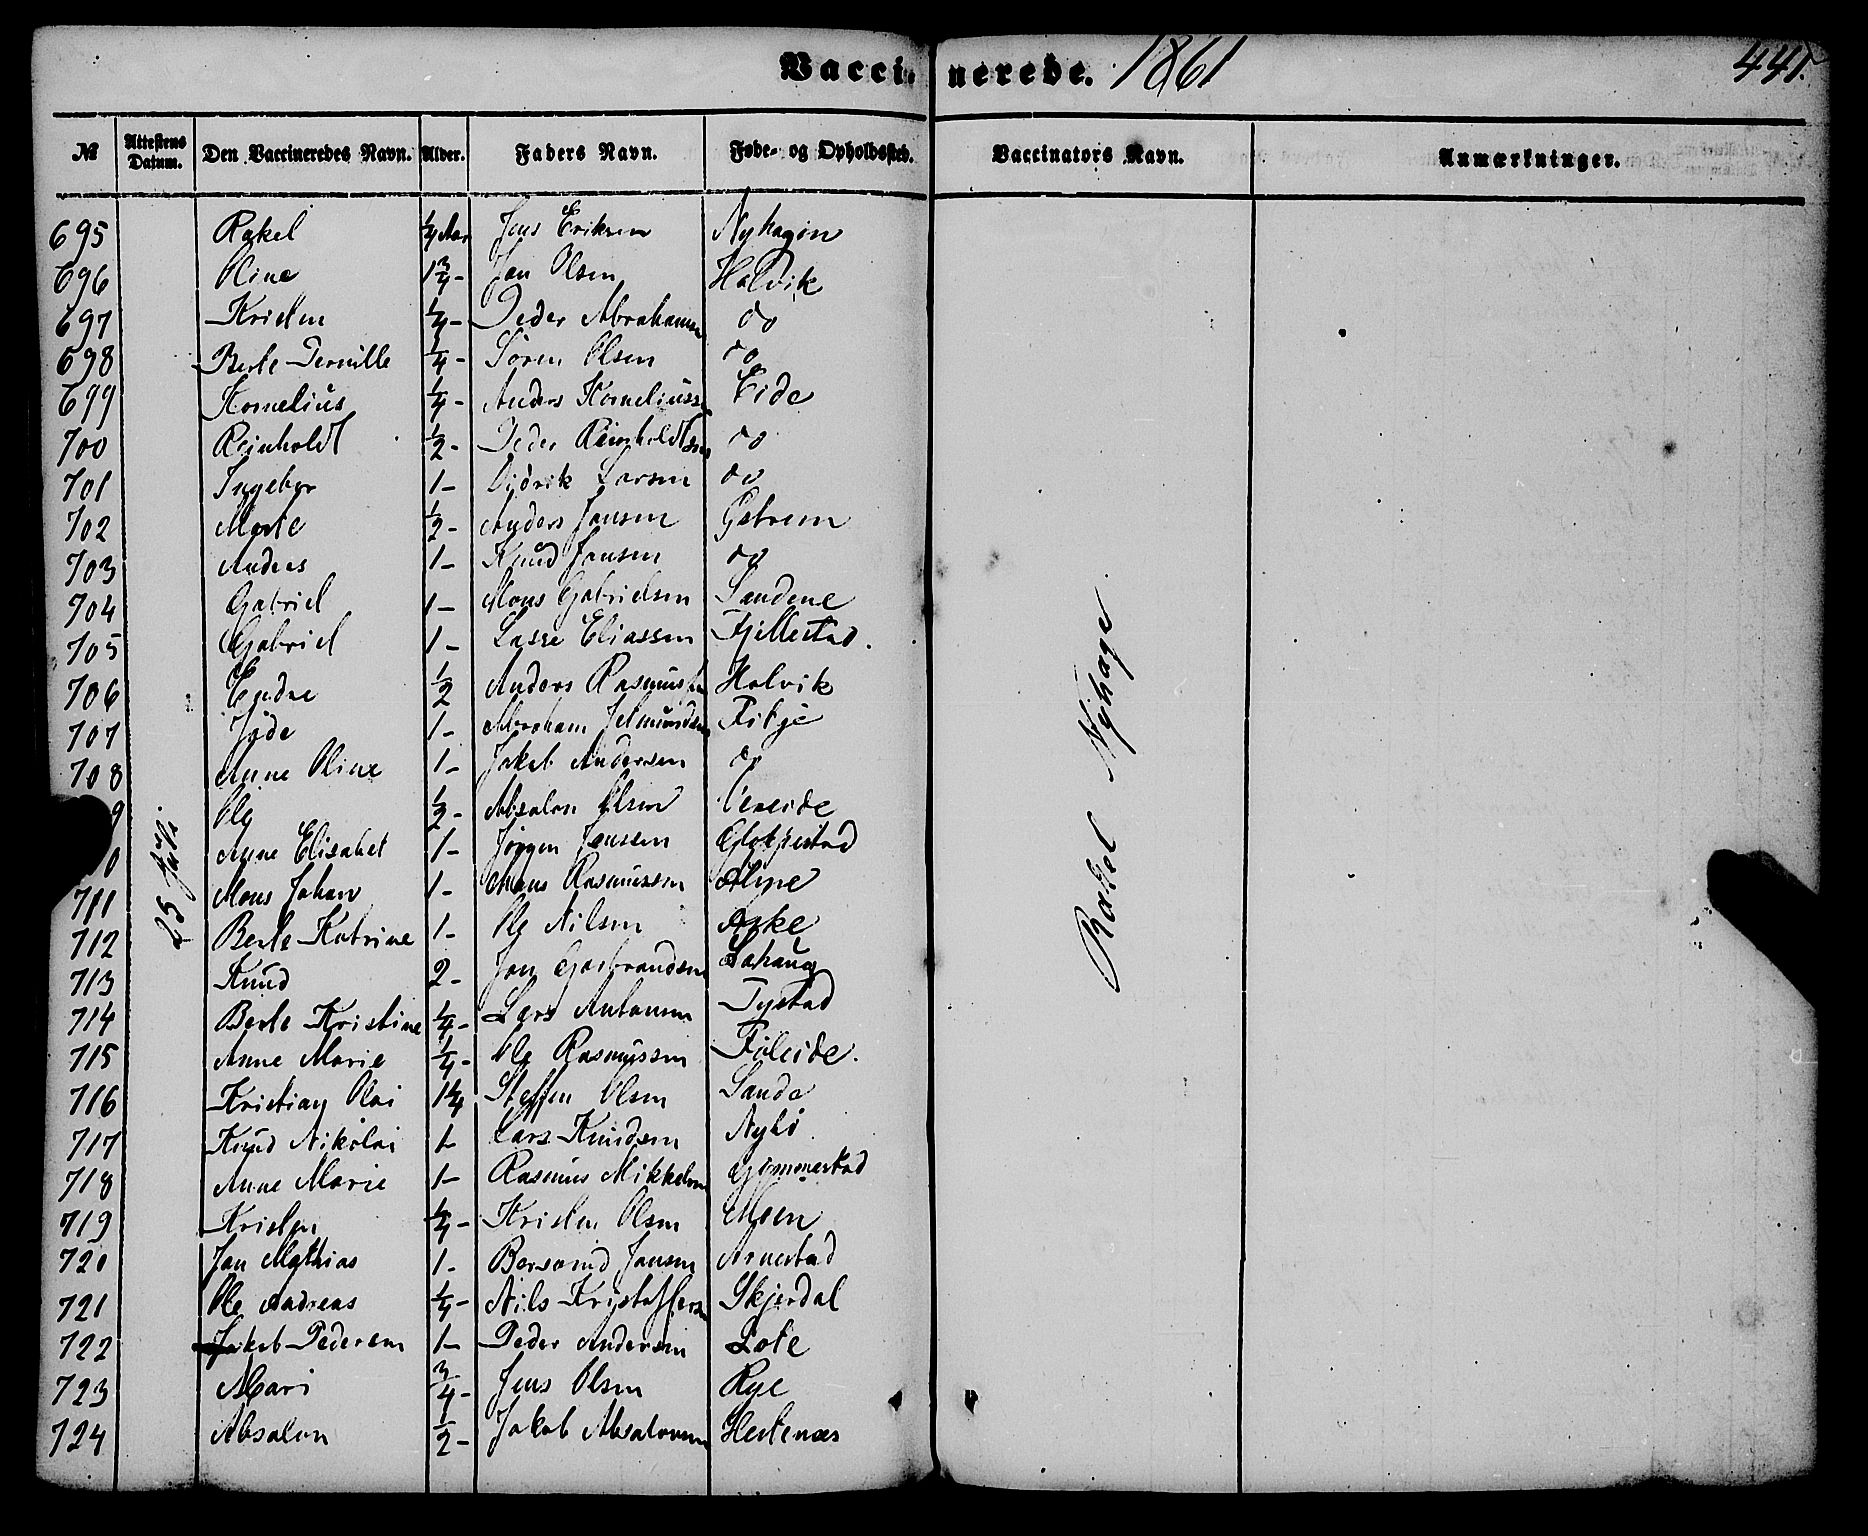 Vaccinerede. 1861
441.
№ Attestens Datum. Den Vaccineredes Navn. Alder. Faders Navn. Føde- og Opholdssted. Vaccinators Navn. Anmærkninger.
25 Juli.
Rakel Nyhage
695 Rakel 1/4 Aar Jens Eriksen Nyhagen
696 Oline 1 3/4 - Jon Olsen Holvik
697 Kristen 1/4 - Peder Abrahamsen do
698 Berte Pernille 1/4 - Sören Olsen do
699 Kornelius 1/4 - Anders Korneliuss Eide
700 Reinholdt 1/2 - Peder Reinholdtsen do
701 Ingebor 1 - Didrik Larsen do
702 Marte 1/2 - Anders Jansen
703 Anders 1 - Knud Jansen do
704 Gabriel 1 - Mons Gabrielsen Sandene
705 Gabriel 1 - Lasse Eliassen Fjellestad.
706 Endre 1/2 Anders Rasmussen Holvik
707 1 - Abraham Fitje
708 Anne Oline 1 - Jakob Andersen do
9 Ole 1/2 - Absalon Olsen Vereide
0 Anne Elisabet 1 - Jörgen Janssen
711 Mons Johan 1 - Mons Rasmussen
712 Berte Katrine 1 - Ole Nilsen
713 Knud 2 - Jon Gerbrandsen
714 Berte Kristine 1/4 - Lars Antonsen Tystad
715 Anne Marie 1/4 - Ole Rasmussen
716 Kristian Olai 1 1/4 Steffen Olsen Sande
717 Knud Nikolai 1 - Lars Knudsen Nybö
718 Anne Marie 1 - Rasmus Mikkelsen Gimmestad
719 Kristen 1/4 - Kristen Olsen Moen
720 Jon Mathias 1 - Jansen Arnestad
721 Ole Andreas 1/4 - Nils Kristoffersen Skjerdal
722 Jakob Pedersen 1 - Peder Andersen Lote
723 Mari 3/4 - Jens Olsen Rye
724 Absalon 1/2 - Jakob Absalonsen Hestenæs